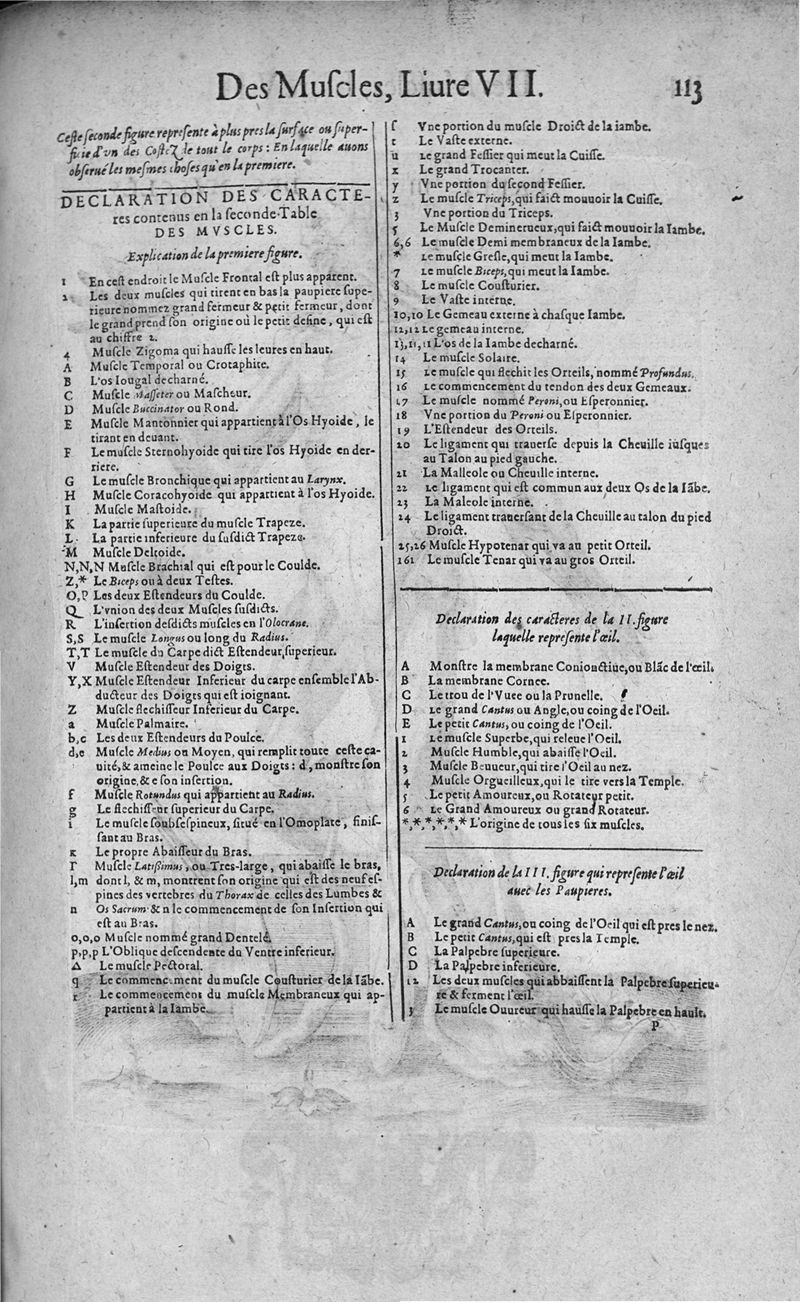 Des Muſcles, Liure VII. 113
Ceſte ſeconde figure repreſente à plus pres la ſurface ou ſuper-
ficie d'vn des Coſtez de tout le corps : En laquelle auons
obſerué les meſmes choſes qu'en la premiere.
DECLARATION DES CARACTE-
res contenus en la ſeconde Table
DES MVSCLES.
Explication de la premiere figure.
1 En ceſt endroit le Muſcle Frontal eſt plus apparent.
2 Les deux muſcles qui tirent en bas la paupiere ſupe-
rieure nommez grand fermeur & petit fermeur, dont
le grand prend ſon origine où le petit define, qui eſt
au chiffre 2.
4 Muſcle Zigoma qui hauſſe les leures en haut.
A Muſcle Temporal ou Crotaphite.
B L'os Iougal decharné.
C Muſcle Maſſeter ou Maſcheur.
D Muſcle Buccinator ou Rond.
E Muſcle Mantonnier qui appartient à l'Os Hyoide, le
tirant en deuant.
F Le muſcle Sternohyoide qui tire l'os Hyoide en der-
riere.
G Le muſcle Bronchique qui appartient au Larynx.
H Muſcle Coracohyoide qui appartient à l'os Hyoide.
I Muſcle Maſtoide.
K La partie ſuperieure du muſcle Trapeze.
L La partie inferieure du ſuſdict Trapeze.
M Muſcle Deltoide.
N,N,N Muſcle Brachial qui eſt pour le Coulde.
Z,* Le Biceps ou à deux Teſtes.
O,P Les deux Eſtendeurs du Coulde.
Q L'vnion des deux Muſcles ſuſdicts.
R L'inſertion deſdicts muſcles en l'Olocrane.
S,S Le muſcle Longus ou long du Radius.
T,T Le muſcle du Carpe dict Eſtendeur, ſuperieur.
V Muſcle Eſtendeur des Doigts.
Y,X Muſcle Eſtendeur Inferieur du carpe enſemble l'Ab-
ducteur des Doigts qui eſt ioignant.
Z Muſcle flechiſſeur Inferieur du Carpe.
a Muſcle Palmaire.
b,c Les deux Eſtendeurs du Poulce.
d,e Muſcle Medius ou Moyen, qui remplit toute ceſte ca-
uité, & ameine le Poulce aux Doigts : d, monſtre ſon
origine, & e ſon inſertion.
f Muſcle Rotundus qui appartient au Radius.
g Le flechiſſeur ſuperieur du Carpe.
i Le muſcle ſoubſeſpineux, ſitué en l'Omoplate, finiſ-
ſant au Bras.
κ Le propre Abaiſſeur du Bras.
Γ Muſcle Latiſſimus, ou Tres-large, qui abaiſſe le bras,
l,m dont l, & m, montrent ſon origine qui eſt des neuf eſ-
pines des vertebres du Thorax de celles des Lumbes &
n Os Sacrum & n le commencement de ſon Inſertion qui
eſt au Bras.
o,o,o Muſcle nommé grand Dentelé.
p,p,p L'Oblique deſcendente du Ventre inferieur.
Δ Le muſcle Pectoral.
q Le commencement du muſcle Couſturier de la Iãbe.
r Le commencement du muſcle Membraneux qui ap-
partient à la Iambe.
ſ Vne portion du muſcle Droict de la iambe.
t Le Vaſte externe.
u Le grand Feſſier qui meut la Cuiſſe.
x Le grand Trocanter.
y Vne portion du ſecond Feſſier.
z Le muſcle Triceps, qui faict mouuoir la Cuiſſe.
3 Vne portion du Triceps.
5 Le Muſcle Deminerueux, qui faict mouuoir la Iambe.
6,6 Le muſcle Demi membraneux de la Iambe.
* Le muſcle Greſle, qui meut la Iambe.
7 Le muſcle Biceps, qui meut la Iambe.
8 Le muſcle Couſturier.
9 Le Vaſte interne.
10,10 Le Gemeau externe à chaſque Iambe.
12,12 Le gemeau interne.
13,11,11 L'os de la Iambe decharné.
14 Le muſcle Solaire.
15 Le muſcle qui flechit les Orteils, nommé Profundus.
16 Le commencement du tendon des deux Gemeaux.
17 Le muſcle nommé Peroni, ou Eſperonnier.
18 Vne portion du Peroni ou Eſperonnier.
19 L'Eſtendeur des Orteils.
20 Le ligament qui trauerſe depuis la Cheuille iuſques
au Talon au pied gauche.
21 La Malleole ou Cheuille interne.
22 Le ligament qui eſt commun aux deux Os de la Iãbe.
23 La Maleole interne.
24 Le ligament trauerſant de la Cheuille au talon du pied
Droict.
25,26 Muſcle Hypotenar qui va au petit Orteil.
161 Le muſcle Tenar qui va au gros Orteil.
Declaration des caracteres de la II. figure
laquelle repreſente l'œil.
A Monſtre la membrane Conionctiue, ou Blãc de l'œil.
B La membrane Cornee.
C Le trou de l'Vuee ou la Prunelle.
D Le grand Cantus ou Angle, ou coing de l'Oeil.
E Le petit Cantus, ou coing de l'Oeil.
1 Le muſcle Superbe, qui releue l'Oeil.
2 Muſcle Humble, qui abaiſſe l'Oeil.
3 Muſcle Beuueur, qui tire l'Oeil au nez.
4 Muſcle Orgueilleux, qui le tire vers la Temple.
5 Le petit Amoureux, ou Rotateur petit.
6 Le Grand Amoureux ou grand Rotateur.
*,*,*,*,*,* L'origine de tous les ſix muſcles.
Declaration de la III. figure qui repreſente l'œil
auec les Paupieres.
A Le grand Cantus, ou coing de l'Oeil qui eſt pres le nez.
B Le petit Cantus, qui eſt pres la Temple.
C La Palpebre ſuperieure.
D La Palpebre inferieure.
12 Les deux muſcles qui abbaiſſent la Palpebre ſuperieu-
re & ferment l'œil.
3 Le muſcle Ouureur qui hauſſe la Palpebre en hault.
P